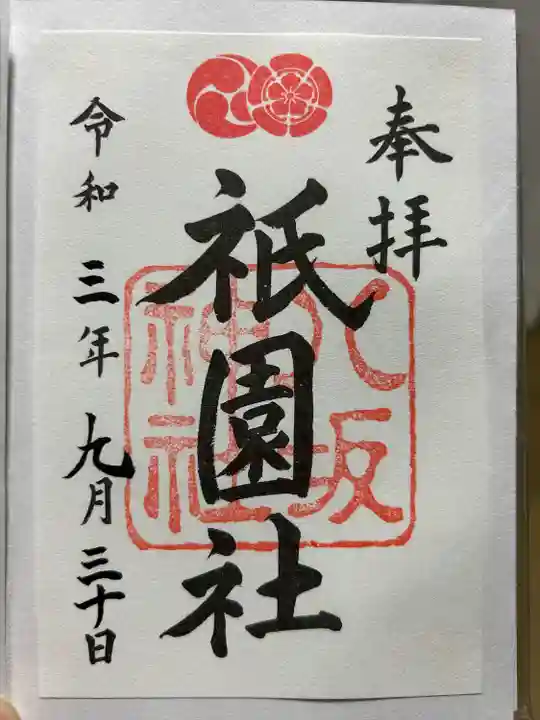 奉拝
祇園社
八坂神社
令和三年九月三十日